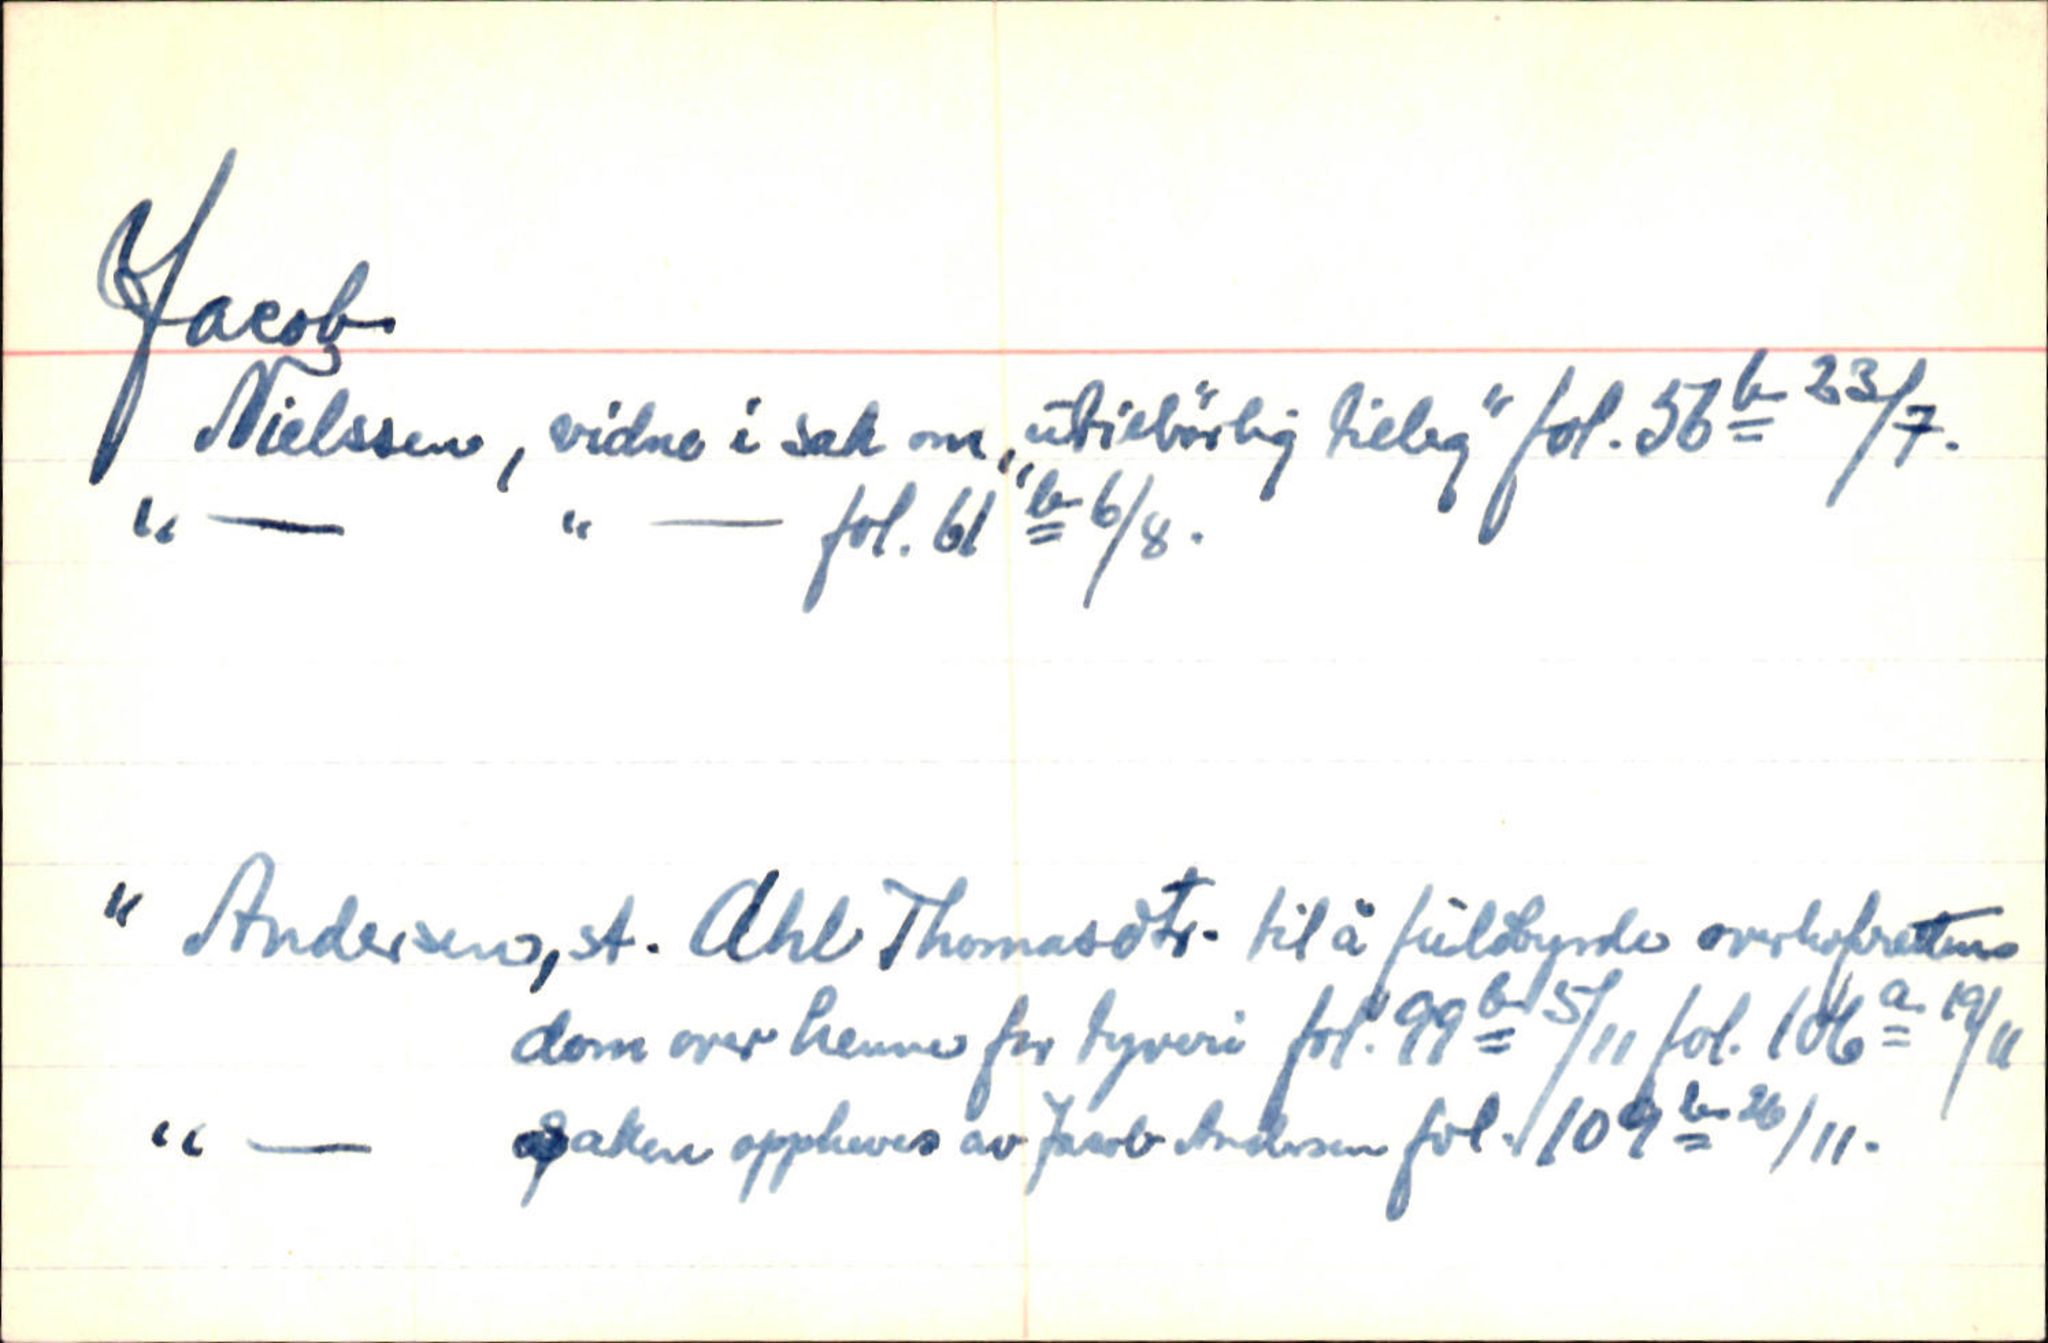 Jacob
Nielssen, vidne i sak om „utilbörlig tieleg" fol. 56 b 23/7.
" — " — fol. 61 b 6/8.
" Andersen, st. Ahl Thomasdtr. til å fuldbyrde overhofrettens
dom over henne for tyveri fol. 99 b 5/11 fol. 106 a 19/11
" — saken oppheves av Jacob Andersen fol. 109 b 26/11.